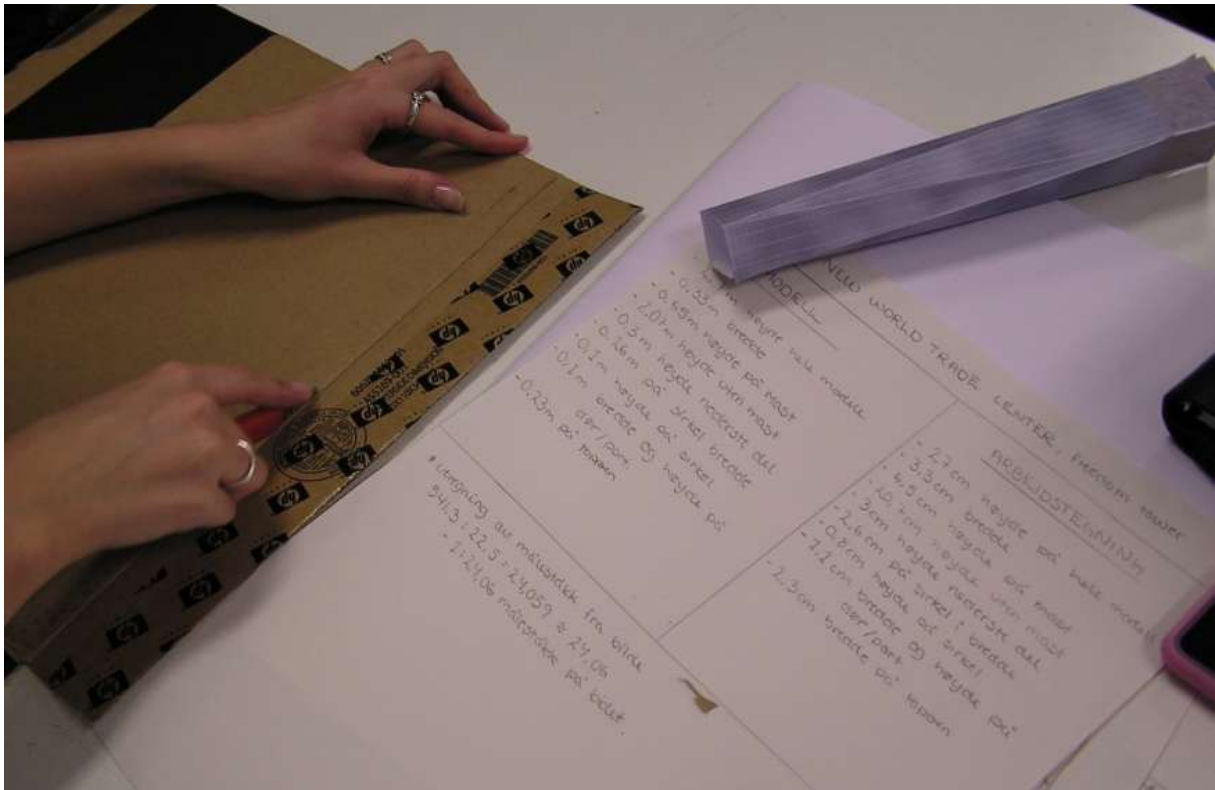 NEW WORLD TRADE CENTER, Freedom tower
MODELL
høyde hele modell
- 0.33m bredde
- 0.45m høyde på mast
- 2.07m høyde uten mast
- 0.3m høyde nederste del
- 0.26m på sirkel bredde
høyde på sirkel
bredde og høyde på
dør/port
- 0.23m på toppen
ARBEIDSTEGNING
- 27cm høyde på hele modell
- 3.3cm bredde
- 4.5cm høyde på mast
- 20.7cm høyde uten mast
- 3cm høyde nederste del
- 2.6cm på sirkel i bredde
- 0.8cm høyde på sirkel
bredde og høyde på
dør/port
- 2.3cm bredde på toppen
utregning av målestokk fra bilde
541.3 : 22.5 = 24,059 ≈ 24,06
- 1:24,06 målestokk på bildet.
hp
hp
hp
hp
hp
hp
hp